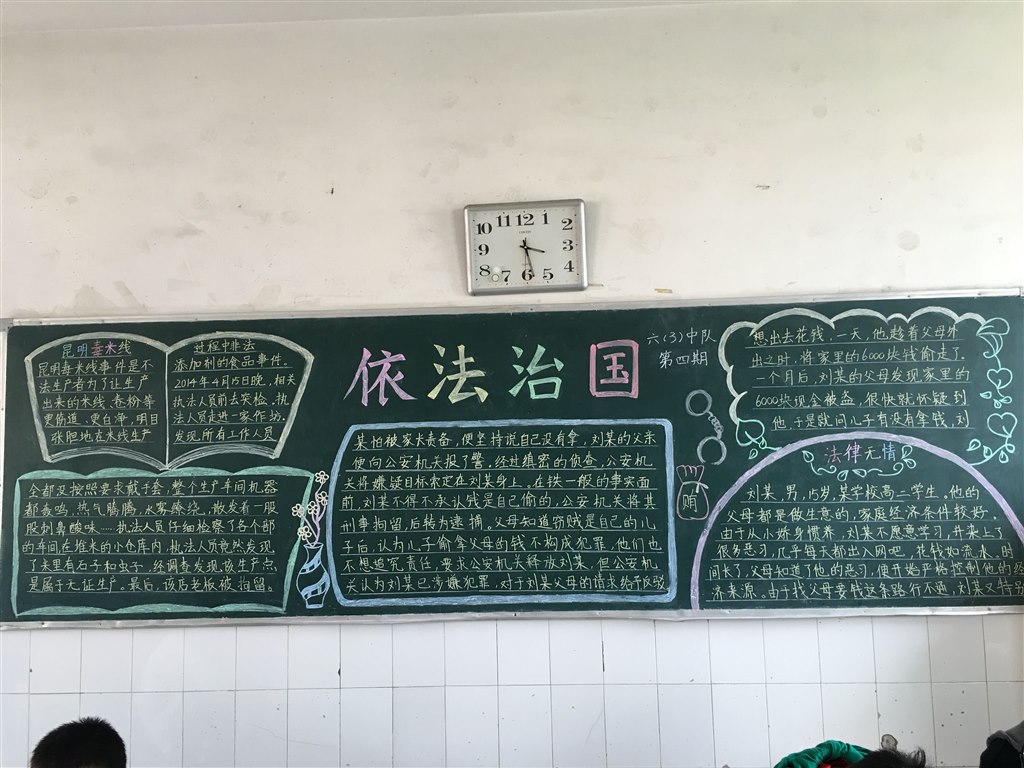 11 12 1
10 2
9 3
8 4
7 6 5
依法治国
六(3)中队
第四期
昆明毒米线
昆明毒米线事件是不
法生产者为了让生产
出来的米线、卷粉等
更筋道、更白净,明目
张胆地在米线生产
过程中非法
添加剂的食品事件。
2014年4月15日晚,相关
执法人员前去突检,执
法人员走进一家作坊,
发现所有工作人员
全都没按照要求戴手套,整个生产车间机器
都轰鸣,热气腾腾,水雾缭绕,散发着一股
股刺鼻酸味……执法人员仔细检察了各个部
的车间,在堆米的小仓库内,执法人员竟然发现
了米里有石子和虫子,经调查发现,该生产点
是属于无证生产。最后,该儿老板被拘留。
法律无情
刘某,男,15岁,某学校高二学生。他的
父母都是做生意的,家庭经济条件较好,
由于从小娇身惯养,刘某不愿意学习,并染上了
很多恶习,几乎每天都出入网吧,花钱如流水,时
间长了,父母知道了他的恶习,便开始严格控制他的经
济来源。由于找父母要钱这条路行不通,刘某又特别
想出去花钱,一天,他趁着父母外
出之时,将家里的6000块钱偷走了,
一个月后,刘某的父母发现家里的
6000块现金被盗,很快就怀疑到
他,于是就问儿子有没有拿钱,刘
某怕被家长责备,便坚持说自己没有拿,刘某的父亲
便向公安机关报了警,经过缜密的侦查,公安机
关将嫌疑目标索定在刘某身上。在铁一般的事实面
前,刘某不得不承认钱是自己偷的,公安机关将其
刑事拘留,后转为逮捕,父母知道窃贼是自己的儿
子后,认为儿子偷拿父母的钱不构成犯罪,他们也
不想追究责任,要求公安机关释放刘某,但公安机
关认为刘某已涉嫌犯罪,对于刘某父母的请求给予反驳